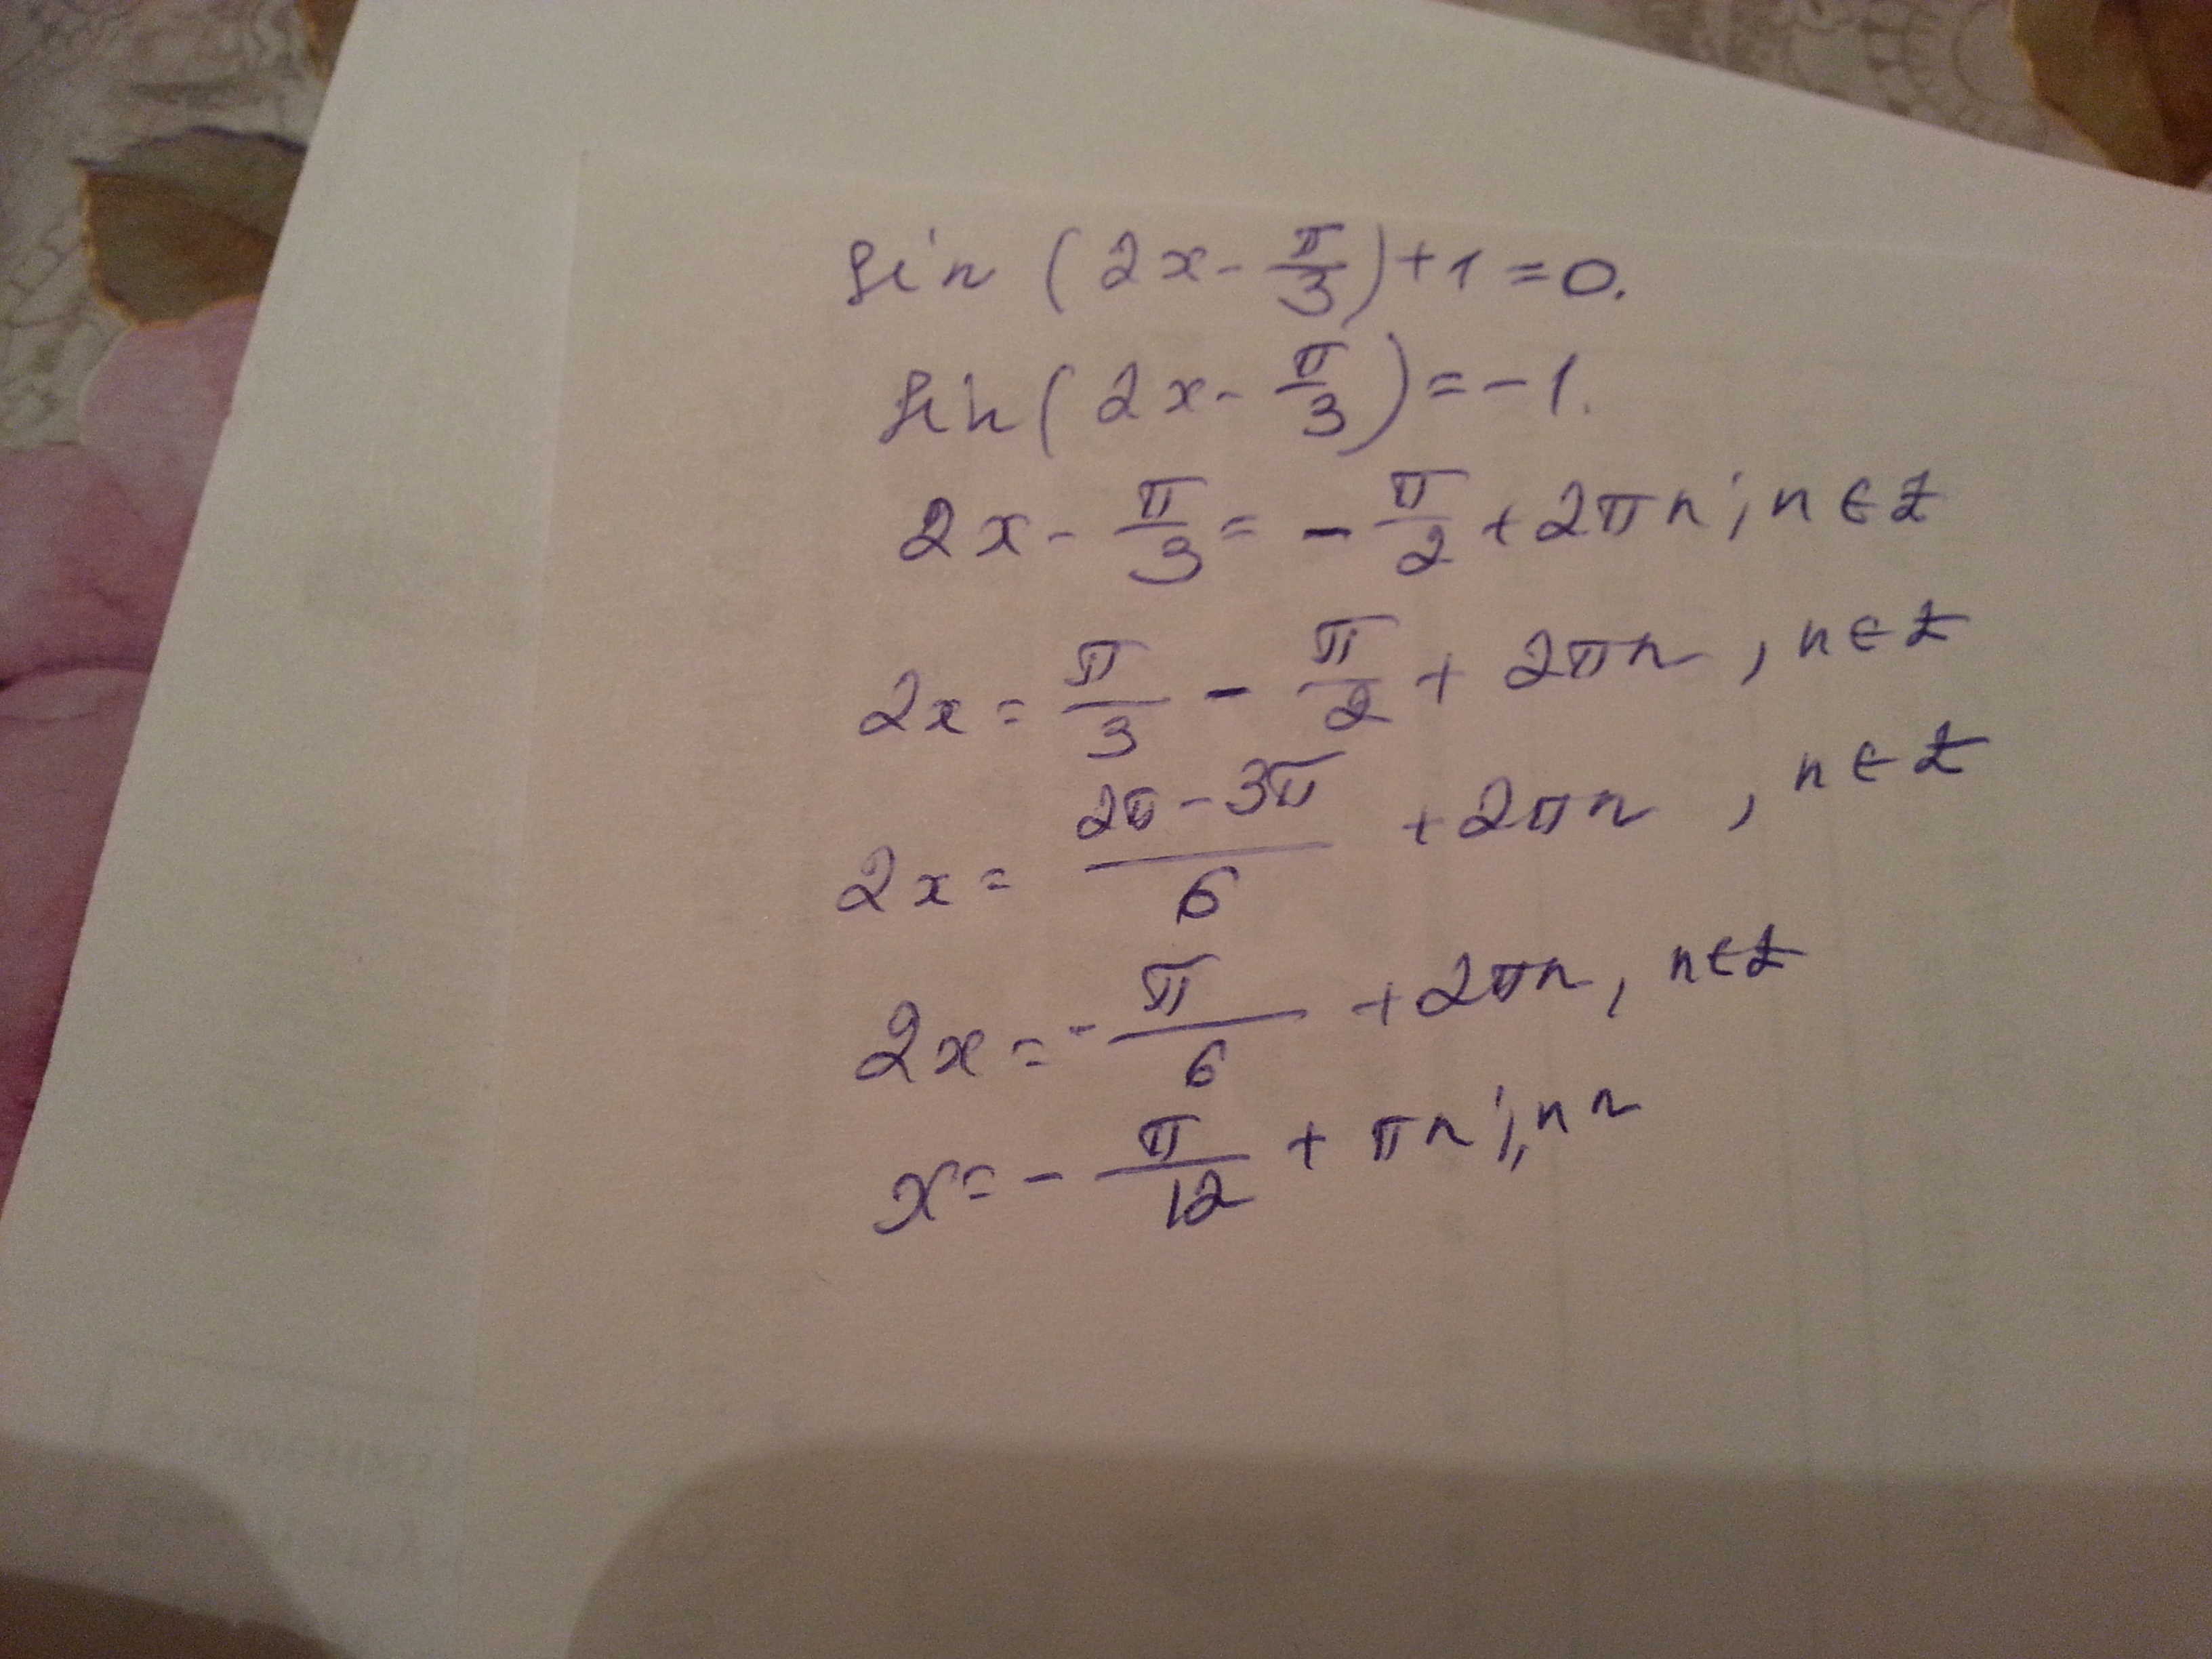 sin (2x - π/3) + 1 = 0.
sin (2x - π/3) = - 1.
2x - π/3 = - π/2 + 2πn; n ∈ Z
2x = π/3 - π/2 + 2πn, n ∈ Z
2x = (2π - 3π)/6 + 2πn, n ∈ Z
2x = - π/6 + 2πn, n ∈ Z
x = - π/12 + πn;